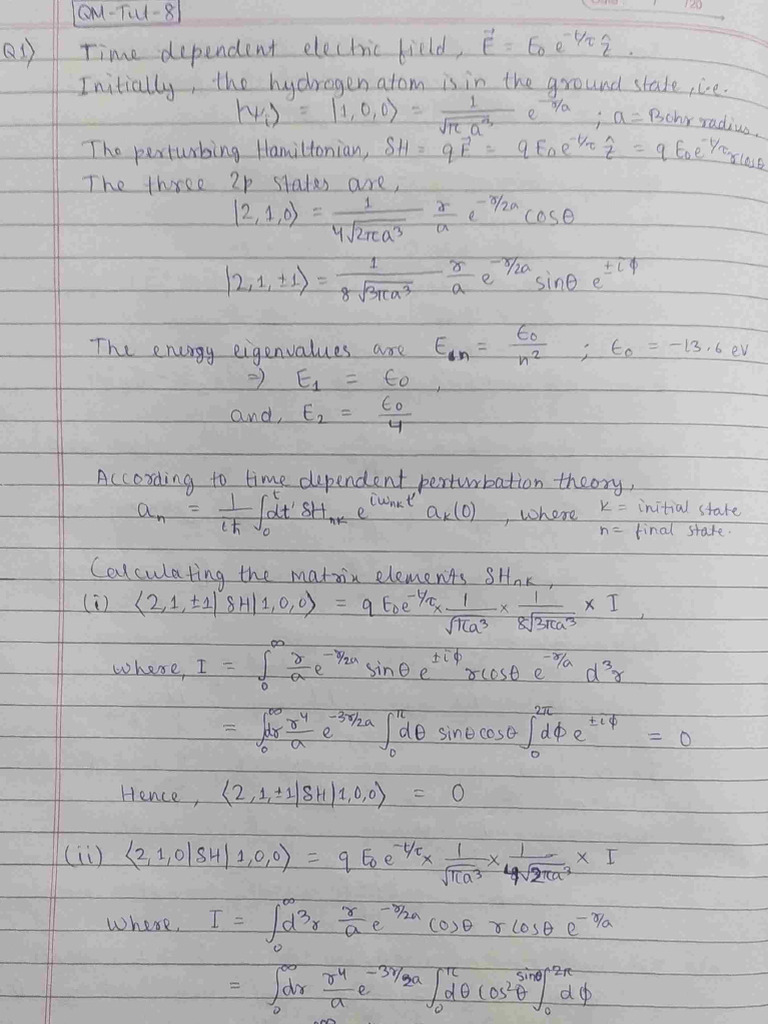 QM-Tut-8
/20
Q1) Time dependent electric field, \vec{E} = E_0 e^{-t/τ} \hat{z}.
Initially, the hydrogen atom is in the ground state, i.e.
|ψ_i⟩ = |1,0,0⟩ = \frac{1}{\sqrt{π a^3}} e^{-r/a} ; a = Bohr radius.
The perturbing Hamiltonian, δH = q\vec{E} = qE_0e^{-t/τ} \hat{z} = qE_0e^{-t/τ} r cosθ
The three 2p states are,
|2,1,0⟩ = \frac{1}{4\sqrt{2πa^3}} \frac{r}{a} e^{-r/2a} cosθ
|2,1,±1⟩ = \frac{1}{8\sqrt{3πa^3}} \frac{r}{a} e^{-r/2a} sinθ e^{±iφ}
The energy eigenvalues are E_n = \frac{ϵ_0}{n^2} ; ϵ_0 = -13.6 eV
⇒ E_1 = ϵ_0 ,
and, E_2 = \frac{ϵ_0}{4}
According to time dependent perturbation theory,
a_n = \frac{1}{iħ} ∫_0^t dt' δH_{nk} e^{iω_{nk}t'} a_k(0) , where k = initial state
n = final state.
Calculating the matrix elements δH_{nk},
(i) ⟨2,1,±1|δH|1,0,0⟩ = qE_0e^{-t/τ} × \frac{1}{\sqrt{πa^3}} × \frac{1}{8\sqrt{3πa^3}} × I ,
where, I = ∫_0^∞ \frac{r}{a} e^{-r/2a} sinθ e^{±iφ} r cosθ e^{-r/a} d^3r
= ∫_0^∞ dr \frac{r^4}{a} e^{-3r/2a} ∫_0^π dθ sinθ cosθ ∫_0^{2π} dφ e^{±iφ} = 0
Hence, ⟨2,1,±1|δH|1,0,0⟩ = 0
(ii) ⟨2,1,0|δH|1,0,0⟩ = qE_0e^{-t/τ} × \frac{1}{\sqrt{πa^3}} × \frac{1}{4\sqrt{2πa^3}} × I
where, I = ∫_0^∞ d^3r \frac{r}{a} e^{-r/2a} cosθ r cosθ e^{-r/a}
= ∫_0^∞ dr \frac{r^4}{a} e^{-3r/2a} ∫_0^π dθ cos^2θ sinθ ∫_0^{2π} dφ